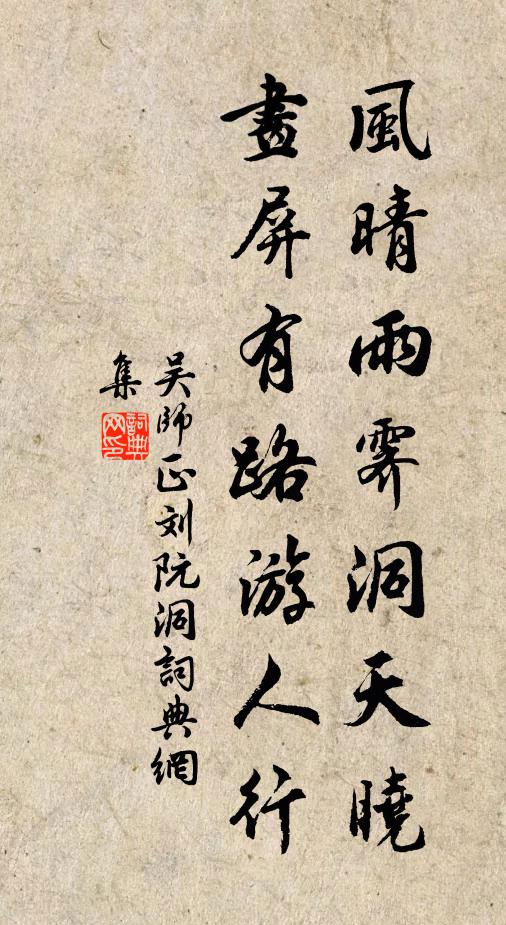 風晴雨霽洞天曉
畫屏有路游人行
吴師正刘阮洞詞典網
集
詞典網印